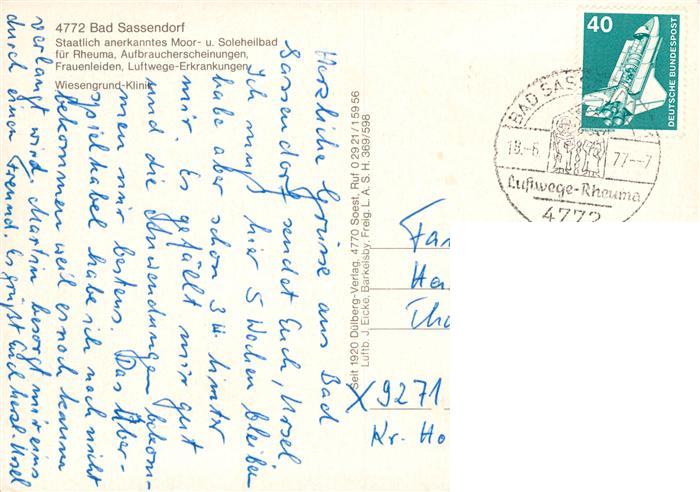 4772 Bad Sassendorf
Staatlich anerkanntes Moor- u. Soleheilbad
für Rheuma, Aufbraucherscheinungen,
Frauenleiden, Luftwege-Erkrankungen
Wiesengrund-Klinik
Herzliche Grüsse aus Bad
Sassendorf sendet Euch, Ursel
Ich muß hier 5 Wochen bleiben
habe aber schon 3 W. hinter
mir. Es gefällt mir gut
und die Anwendungen bekom-
men mir bestens. Das Über-
spielkabel habe ich noch nicht
bekommen weil es noch kaum
verlangt wird. Martin besorgt mir eins
durch einen Freund. Es grüßt Euch herzl. Ursel
Seit 1920 Dülberg-Verlag, 4770 Soest, Ruf 0 29 21/1 59 56
Luftb. J. Eicke, Barkelsby, Freig. L. A. S. H. 369/598
40
DEUTSCHE BUNDESPOST
BAD SAS
19.-6. 77.--7
Luftwege-Rheuma
4772
Fam
Ha
Tha
X 9271
Kr. Ho